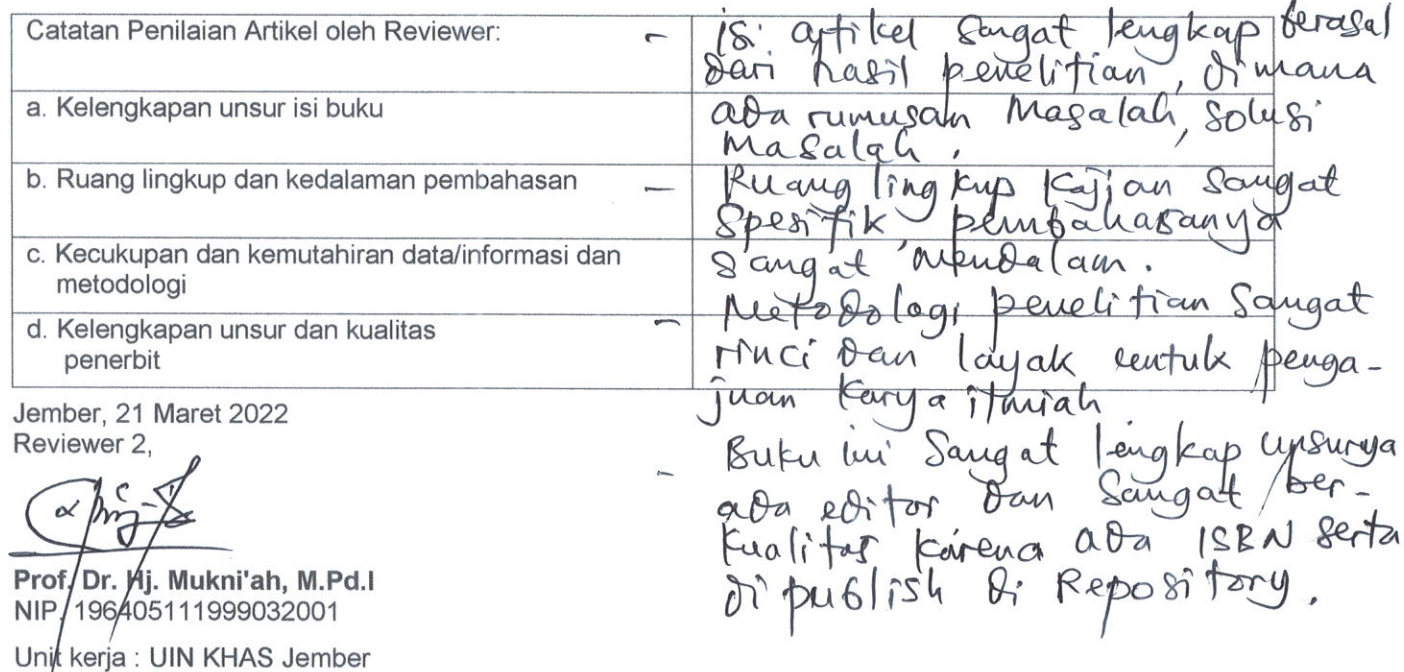 Catatan Penilaian Artikel oleh Reviewer:
a. Kelengkapan unsur isi buku
b. Ruang lingkup dan kedalaman pembahasan
c. Kecukupan dan kemutahiran data/informasi dan
metodologi
d. Kelengkapan unsur dan kualitas
penerbit
- isi artikel sangat lengkap berasal
dari hasil penelitian, dimana
ada rumusan Masalah, Solusi
Masalah.
- Ruang lingkup Kajian Sangat
Spesifik, pembahasanya
sangat mendalam.
- Metodologi penelitian Sangat
rinci dan layak untuk penga-
juan Karya ilmiah
- Buku ini Sangat lengkap unsurnya
ada editor dan Sangat ber-
kualitas karena ada ISBN serta
di publish di Repository.
Jember, 21 Maret 2022
Reviewer 2,
Prof. Dr. Hj. Mukni'ah, M.Pd.I
NIP. 196405111999032001
Unit kerja : UIN KHAS Jember